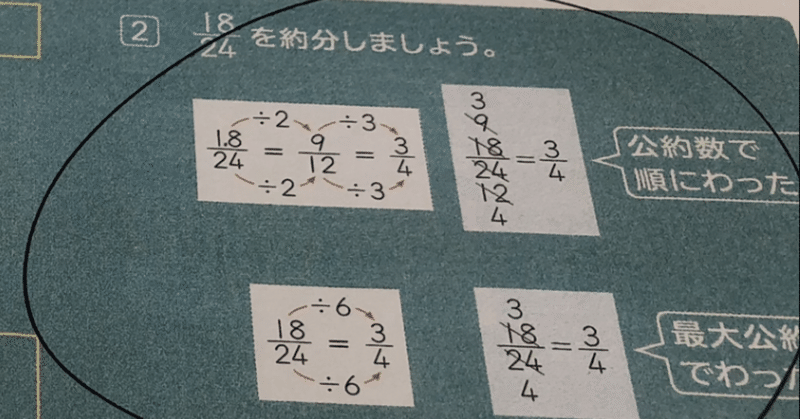 2 18/24 を約分しましょう。
÷2 ÷3
18/24 = 9/12 = 3/4
÷2 ÷3
3
9
18/24 = 3/4
12
4
公約数で
順にわった
÷6
18/24 = 3/4
÷6
3
18/24 = 3/4
4
最大公約
でわっ